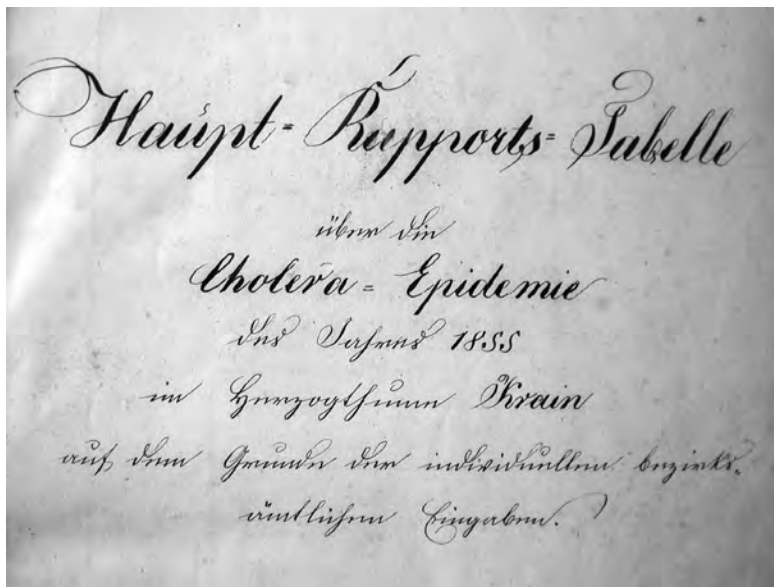 Haupt = Rapports = Tabelle
über die
Cholera = Epidemie
des Jahres 1855
im Herzogthume Krain
auf dem Grunde der individuellen bezirks=
ämtlichen Eingaben.